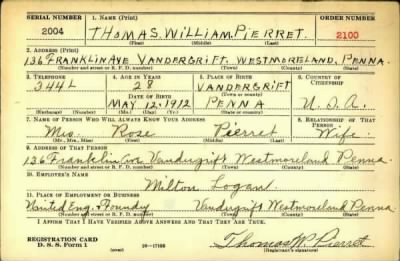 SERIAL NUMBER 1. NAME (Print) ORDER NUMBER
2004 THOMAS. WILLIAM. PIERRET. 2100
(First) (Middle) (Last)
2. ADDRESS (Print)
136 FRANKLIN AVE VANDERGRIFT. WESTMORELAND. PENNA.
(Number and street or R. F. D. number) (Town) (County) (State)
3. TELEPHONE 4. AGE IN YEARS 5. PLACE OF BIRTH 6. COUNTRY OF CITIZENSHIP
344L 28 VANDERGRIFT
DATE OF BIRTH (Town or county)
MAY 12, 1912 PENNA U.S.A.
(Exchange) (Number) (Mo.) (Day) (Yr.) (State or country)
7. NAME OF PERSON WHO WILL ALWAYS KNOW YOUR ADDRESS 8. RELATIONSHIP OF THAT PERSON
Mrs. Rose Pierret Wife.
(Mr., Mrs., Miss) (First) (Middle) (Last)
9. ADDRESS OF THAT PERSON
136 Franklin Ave Vandergrift Westmoreland Penna.
(Number and street or R. F. D. number) (Town) (County) (State)
10. EMPLOYER'S NAME
Milton Logan.
11. PLACE OF EMPLOYMENT OR BUSINESS
United Eng. Foundry Vandergrift Westmoreland Penna.
(Number and street or R. F. D. number) (Town) (County) (State)
I AFFIRM THAT I HAVE VERIFIED ABOVE ANSWERS AND THAT THEY ARE TRUE.
REGISTRATION CARD
D. S. S. Form 1 16—17105 Thomas W. Pierret
(Registrant's signature)